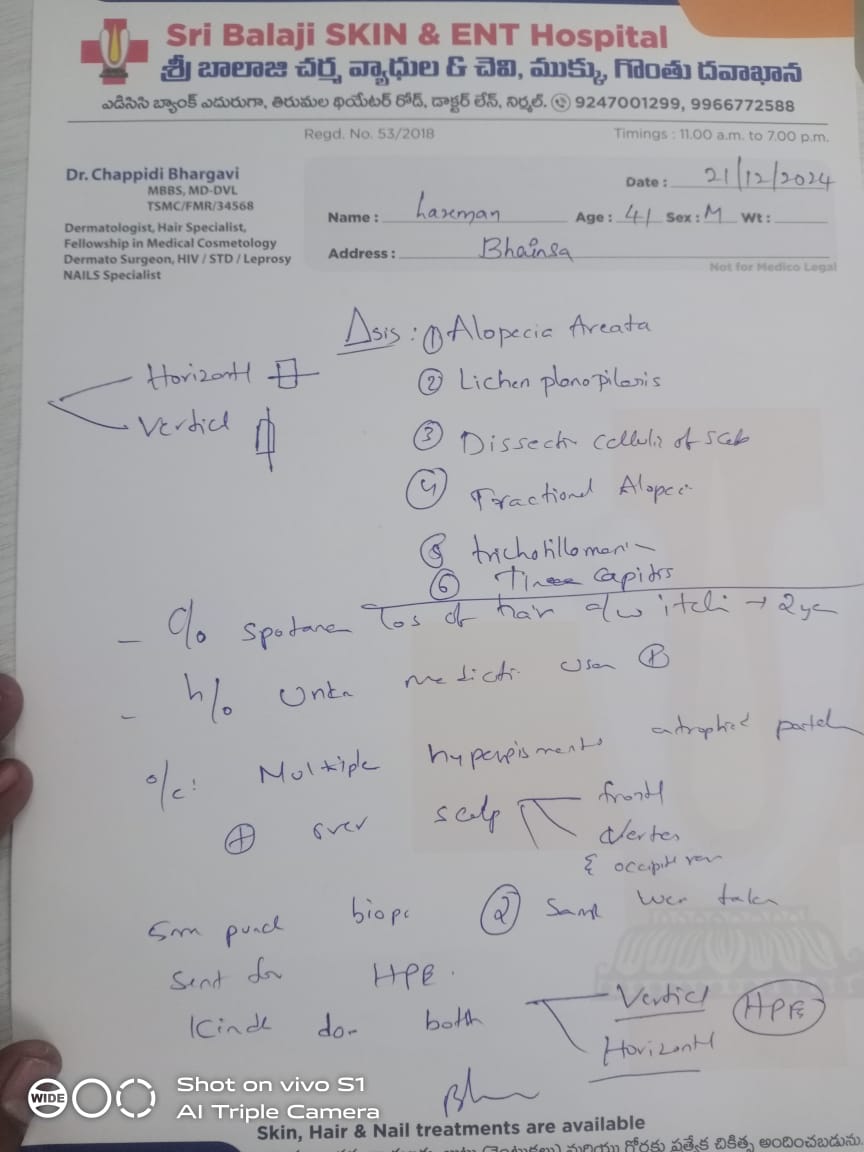 Sri Balaji SKIN & ENT Hospital
శ్రీ బాలాజి చర్మ వ్యాధుల & చెవి, ముక్కు, గొంతు దవాఖాన
ఎడిసిసి బ్యాంక్ ఎదురుగా, తిరుమల థియేటర్ రోడ్, డాక్టర్ లేన్, నిర్మల్. 9247001299, 9966772588
Regd. No. 53/2018 Timings : 11.00 a.m. to 7.00 p.m.
Dr. Chappidi Bhargavi
MBBS, MD-DVL
TSMC/FMR/34568
Dermatologist, Hair Specialist,
Fellowship in Medical Cosmetology
Dermato Surgeon, HIV / STD / Leprosy
NAILS Specialist
Date : 21/12/2024
Name : Laxman Age : 41 Sex : M Wt :
Address : Bhainsa
Not for Medico Legal
Δsis : ① Alopecia Areata
② Lichen planopilaris
③ Dissect cellulit of scalp
④ Tractional Alopec
⑤ trichotillomani
⑥ Tinea capitis
Horizontl
Verticl
- c/o spotane los of hair a/w itchi → 2 ye
- h/o Unkn medicti use ⊕
o/e: Multiple hyperpigmente atrophied patch
⊕ over scalp frontl
Vertex
& occipitl
5mm punch biops ② Sampl wer taken
Sent for HPE.
Kindl do both Verticl HPE
Horizontl
WIDE
Shot on vivo S1
AI Triple Camera
Skin, Hair & Nail treatments are available